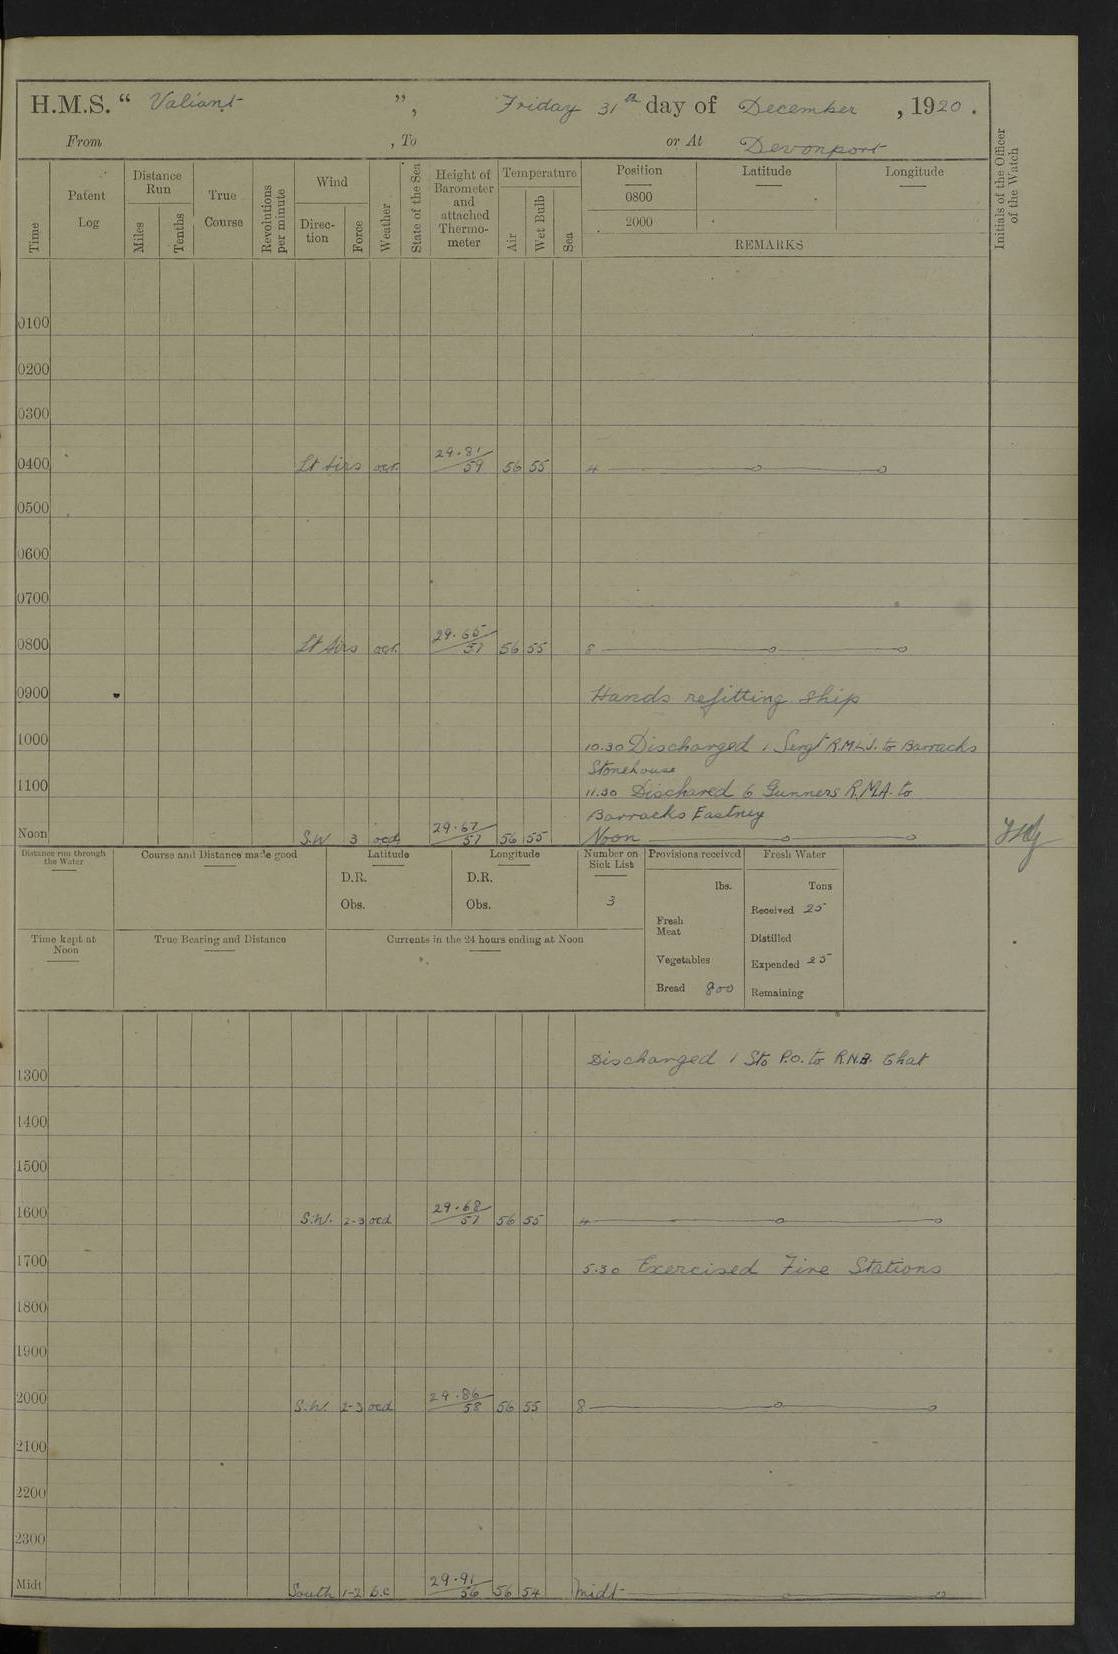 H.M.S. “ Valiant ”, Friday 31st day of December , 1920 .
From , To or At Devonport
Time
Patent Log
Distance Run
Miles
Tenths
True Course
Revolutions per minute
Wind
Direc- tion
Force
Weather
State of the Sea
Height of Barometer and attached Thermo- meter
Temperature
Air
Wet Bulb
Sea
Position
Latitude
Longitude
0800
2000
REMARKS
Initials of the Officer of the Watch
0100
0200
0300
0400 Lt Airs oer. 29.81/59 56 55 4
0500
0600
0700
0800 Lt Airs oer. 29.65/57 56 55 8
0900 Hands refitting Ship
1000 10.30 Discharged 1 Sergt R.M.L.I. to Barracks
Stonehouse
1100 11.30 Dischared 6 Gunners R.M.A. to
Barracks Eastney
Noon S.W 3 ocd 29.67/57 56 55 Noon
Distance run through the Water
Course and Distance made good
Latitude
D.R.
Obs.
Longitude
D.R.
Obs.
Number on Sick List
3
Provisions received
lbs.
Fresh Meat
Vegetables
Bread 800
Fresh Water
Tons
Received 25
Distilled
Expended 25
Remaining
Time kept at Noon
True Bearing and Distance
Currents in the 24 hours ending at Noon
1300 Discharged 1 Sto P.O. to R.N.B. Chat
1400
1500
1600 S.W. 2-3 ocd 29.68/57 56 55 4
1700 5.30 Exercised Fire Stations
1800
1900
2000 S.W. 2-3 ocd 29.86/58 56 55 8
2100
2200
2300
Midt South 1-2 b.c 29.91/56 56 54 Midt